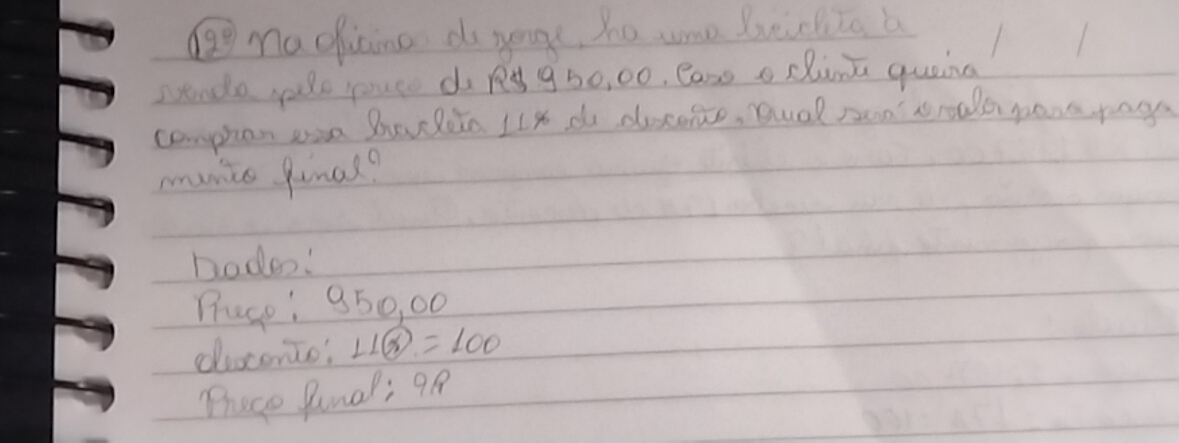 12º Na oficina do Jorge, há uma bicicleta à
venda pelo preço de R$ 950,00. Caso o cliente queira
comprar essa 11% de desconto. Qual será o valor para paga
mento final?
Dados:
Preço: 950,00
desconto: 11% = 100
Preço final: